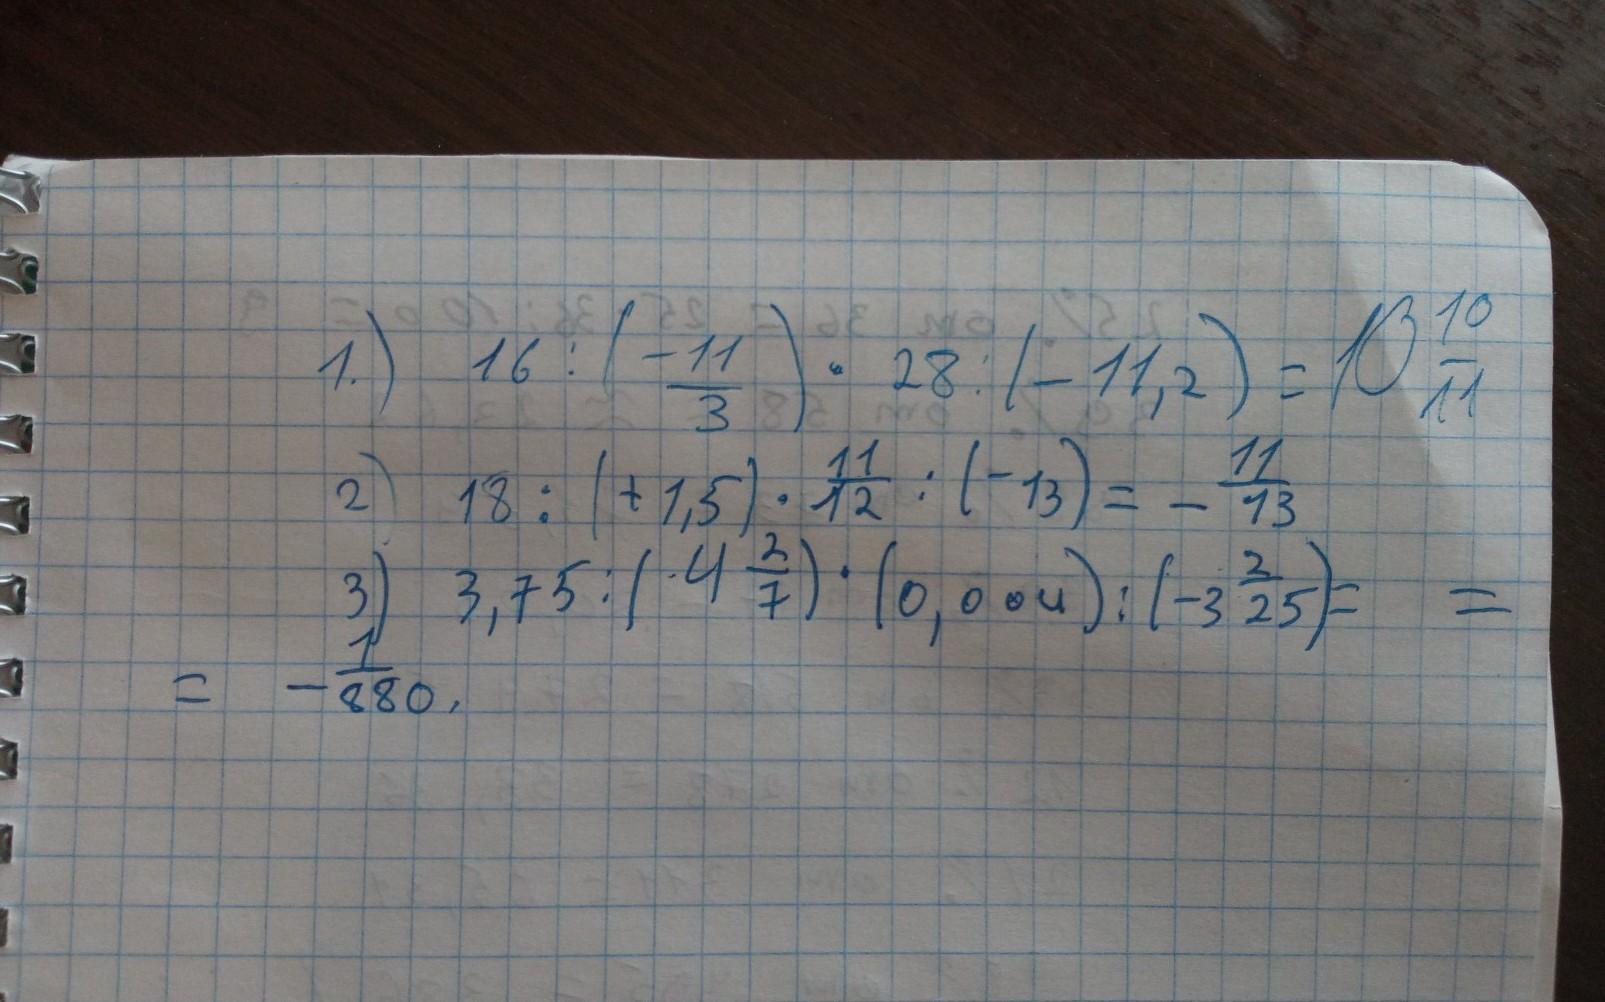 1.) 16 : (-11/3) · 28 : (- 11,2) = 10 10/11
2) 18 : (+ 1,5) · 11/12 : (-13) = - 11/13
3) 3,75 : (-4 2/7) · (0,004) : (-3 2/25) = =
= - 1/880.